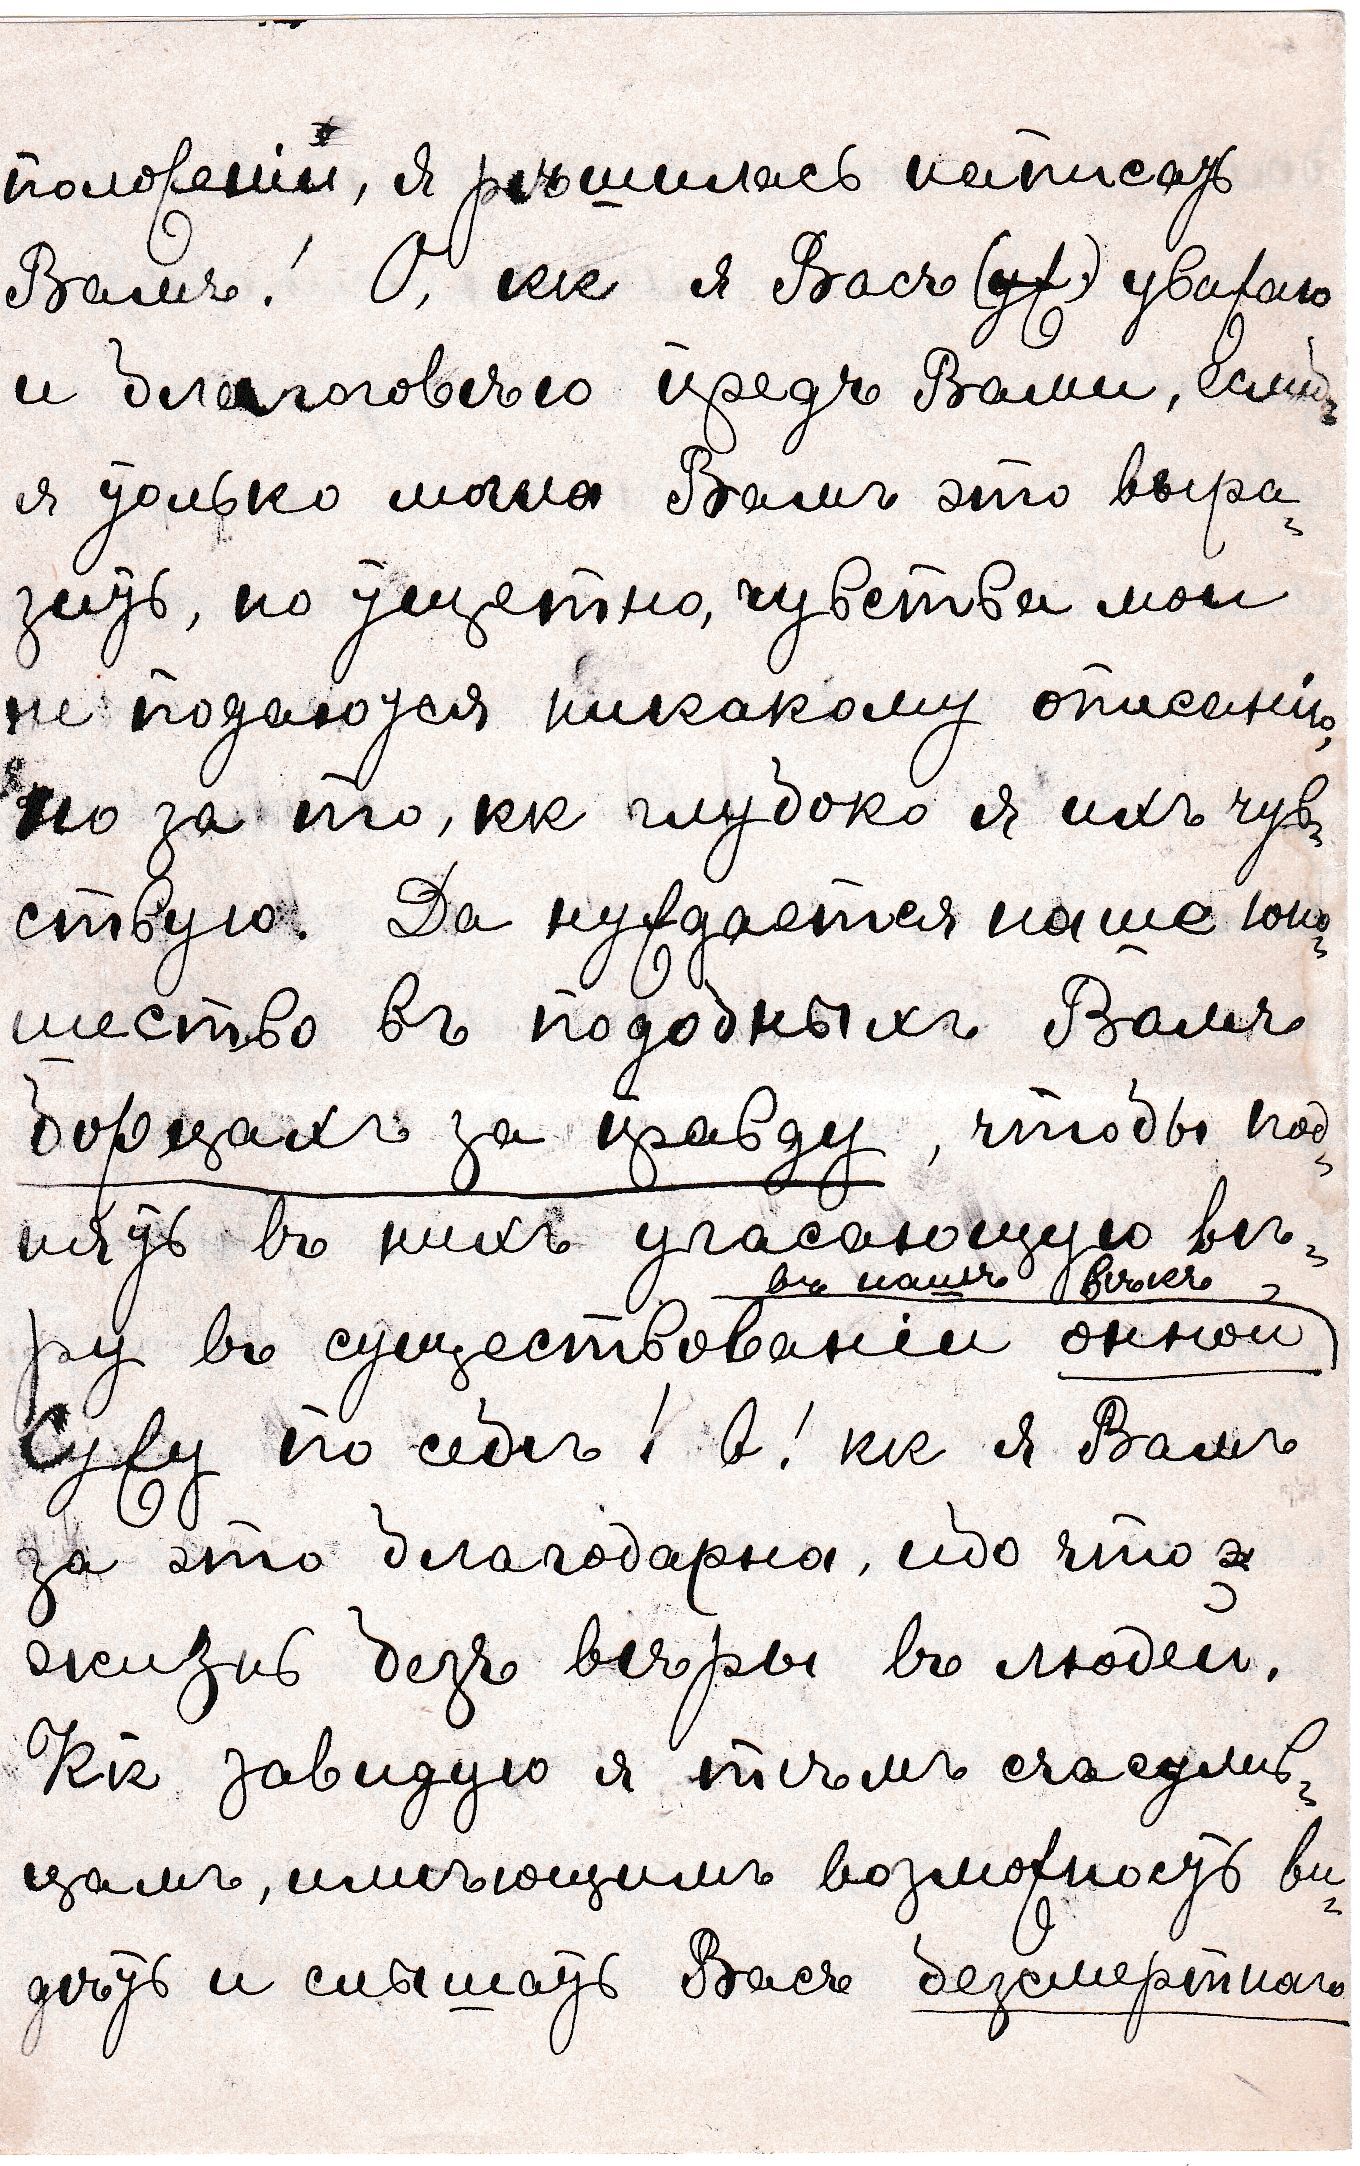 положеніи, я рѣшилась написать
Вамъ! О, кк я Васъ (уж) уважаю
и благоговѣю предъ Вами, еслиб
я только могла Вамъ это выра=
зить, но тщетно, чувства мои
не подаются никакому описанію,
но за то, кк глубоко я ихъ чув=
ствую. Да нуждается наше юно=
шество въ подобныхъ Вамъ
борцахъ за правду, чтобы под=
нять въ нихъ угасающую вѣ=
въ нашъ вѣкъ
ру въ существованіи онной
Сужу по себѣ! О! кк я Вамъ
за это благодарна, ибо что
жизнь безъ вѣры въ людей.
Кк завидую я тѣмъ счастлив=
цамъ, имѣющимъ возможность ви=
дѣть и слышать Васъ безсмертнаго